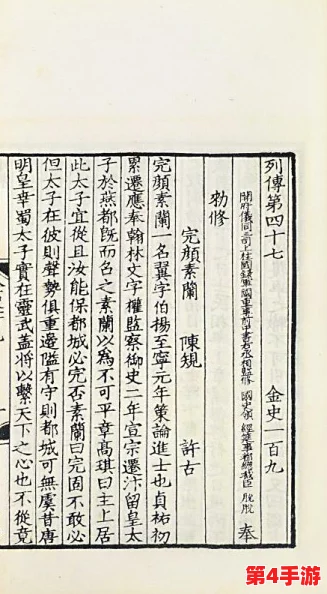 列傳第四十七 金史一百九
開府儀同三司上柱國錄軍國重事前中書右丞相監修 國史領 經筵事都總裁臣 脫脫 奉
勑修
完顏素蘭 陳規 許古
完顏素蘭一名翼字伯揚至寧元年策論進士也貞祐初
累遷應奉翰林文字權監察御史二年宣宗遷汴留皇太
子於燕都既而召之素蘭以為不可平章高琪曰主上居
此太子宜從且汝能保都城必完否素蘭曰完固不敢必
但太子在彼則聲勢俱重邊隘有守則都城可無虞昔唐
明皇幸蜀太子實在靈武蓋將以繫天下之心也不從竟
第4手游